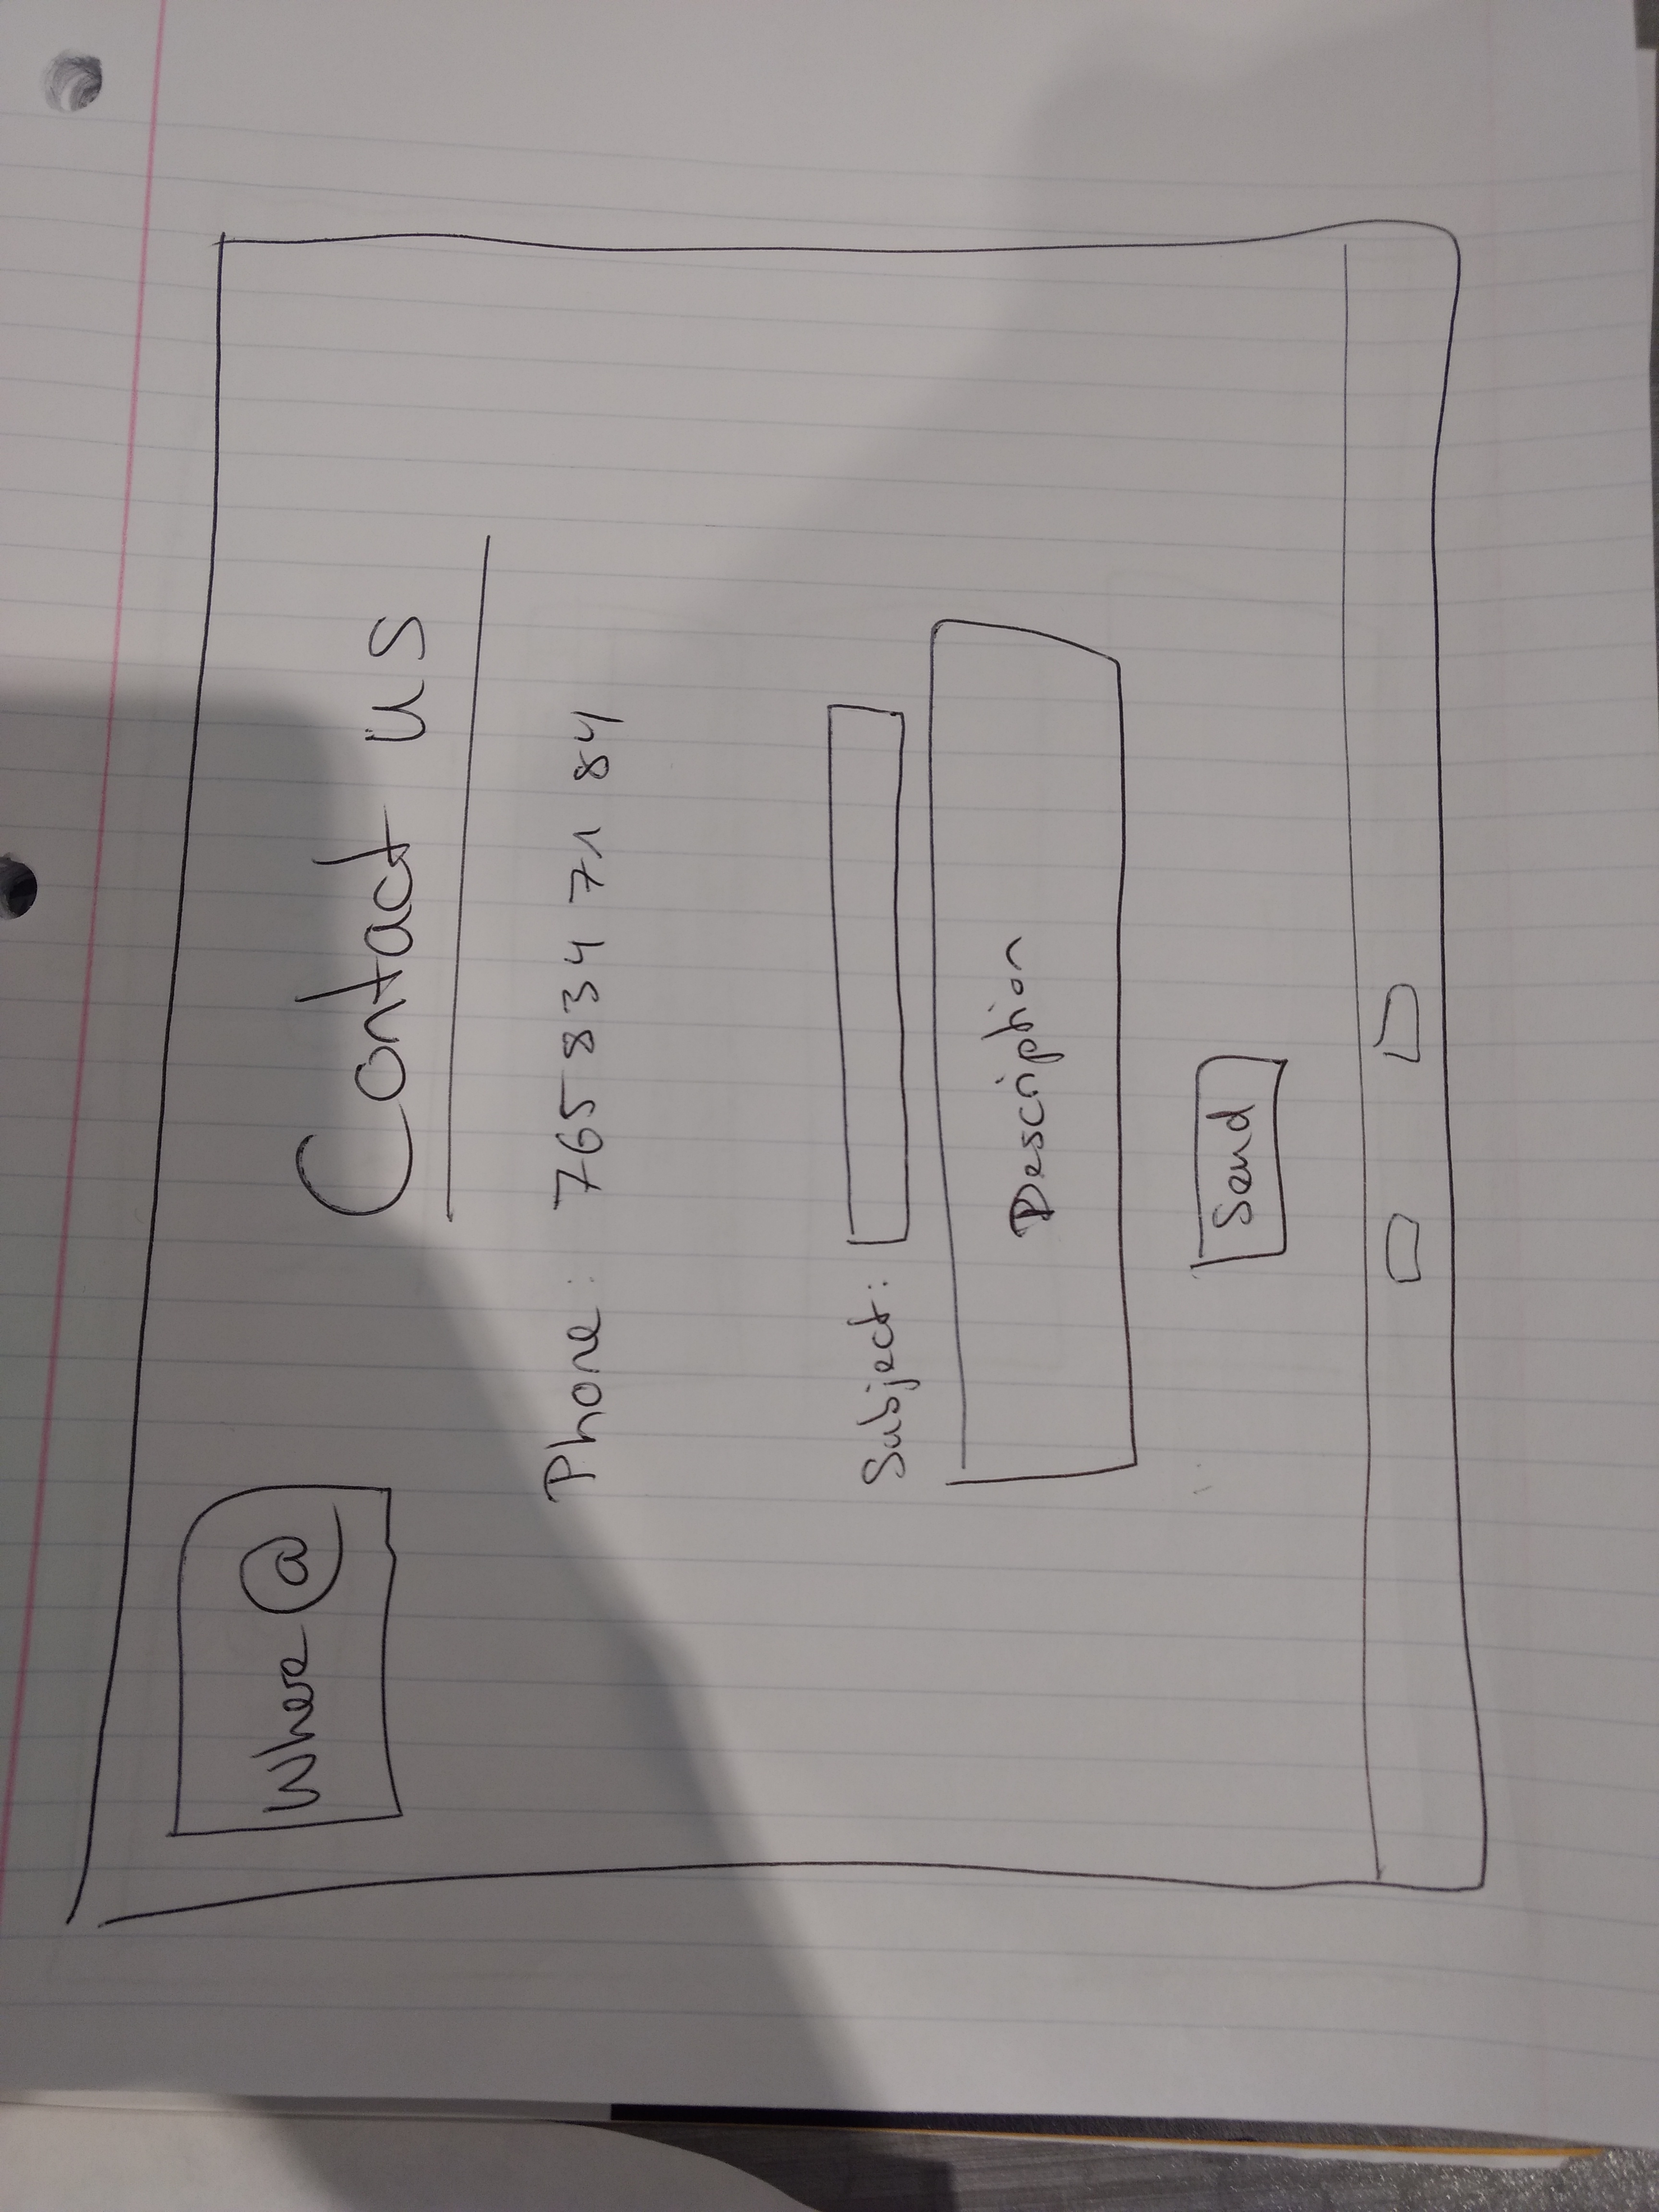 Where @
Contact us
Phone: 765 834 71 84
Subject:
Description
Send